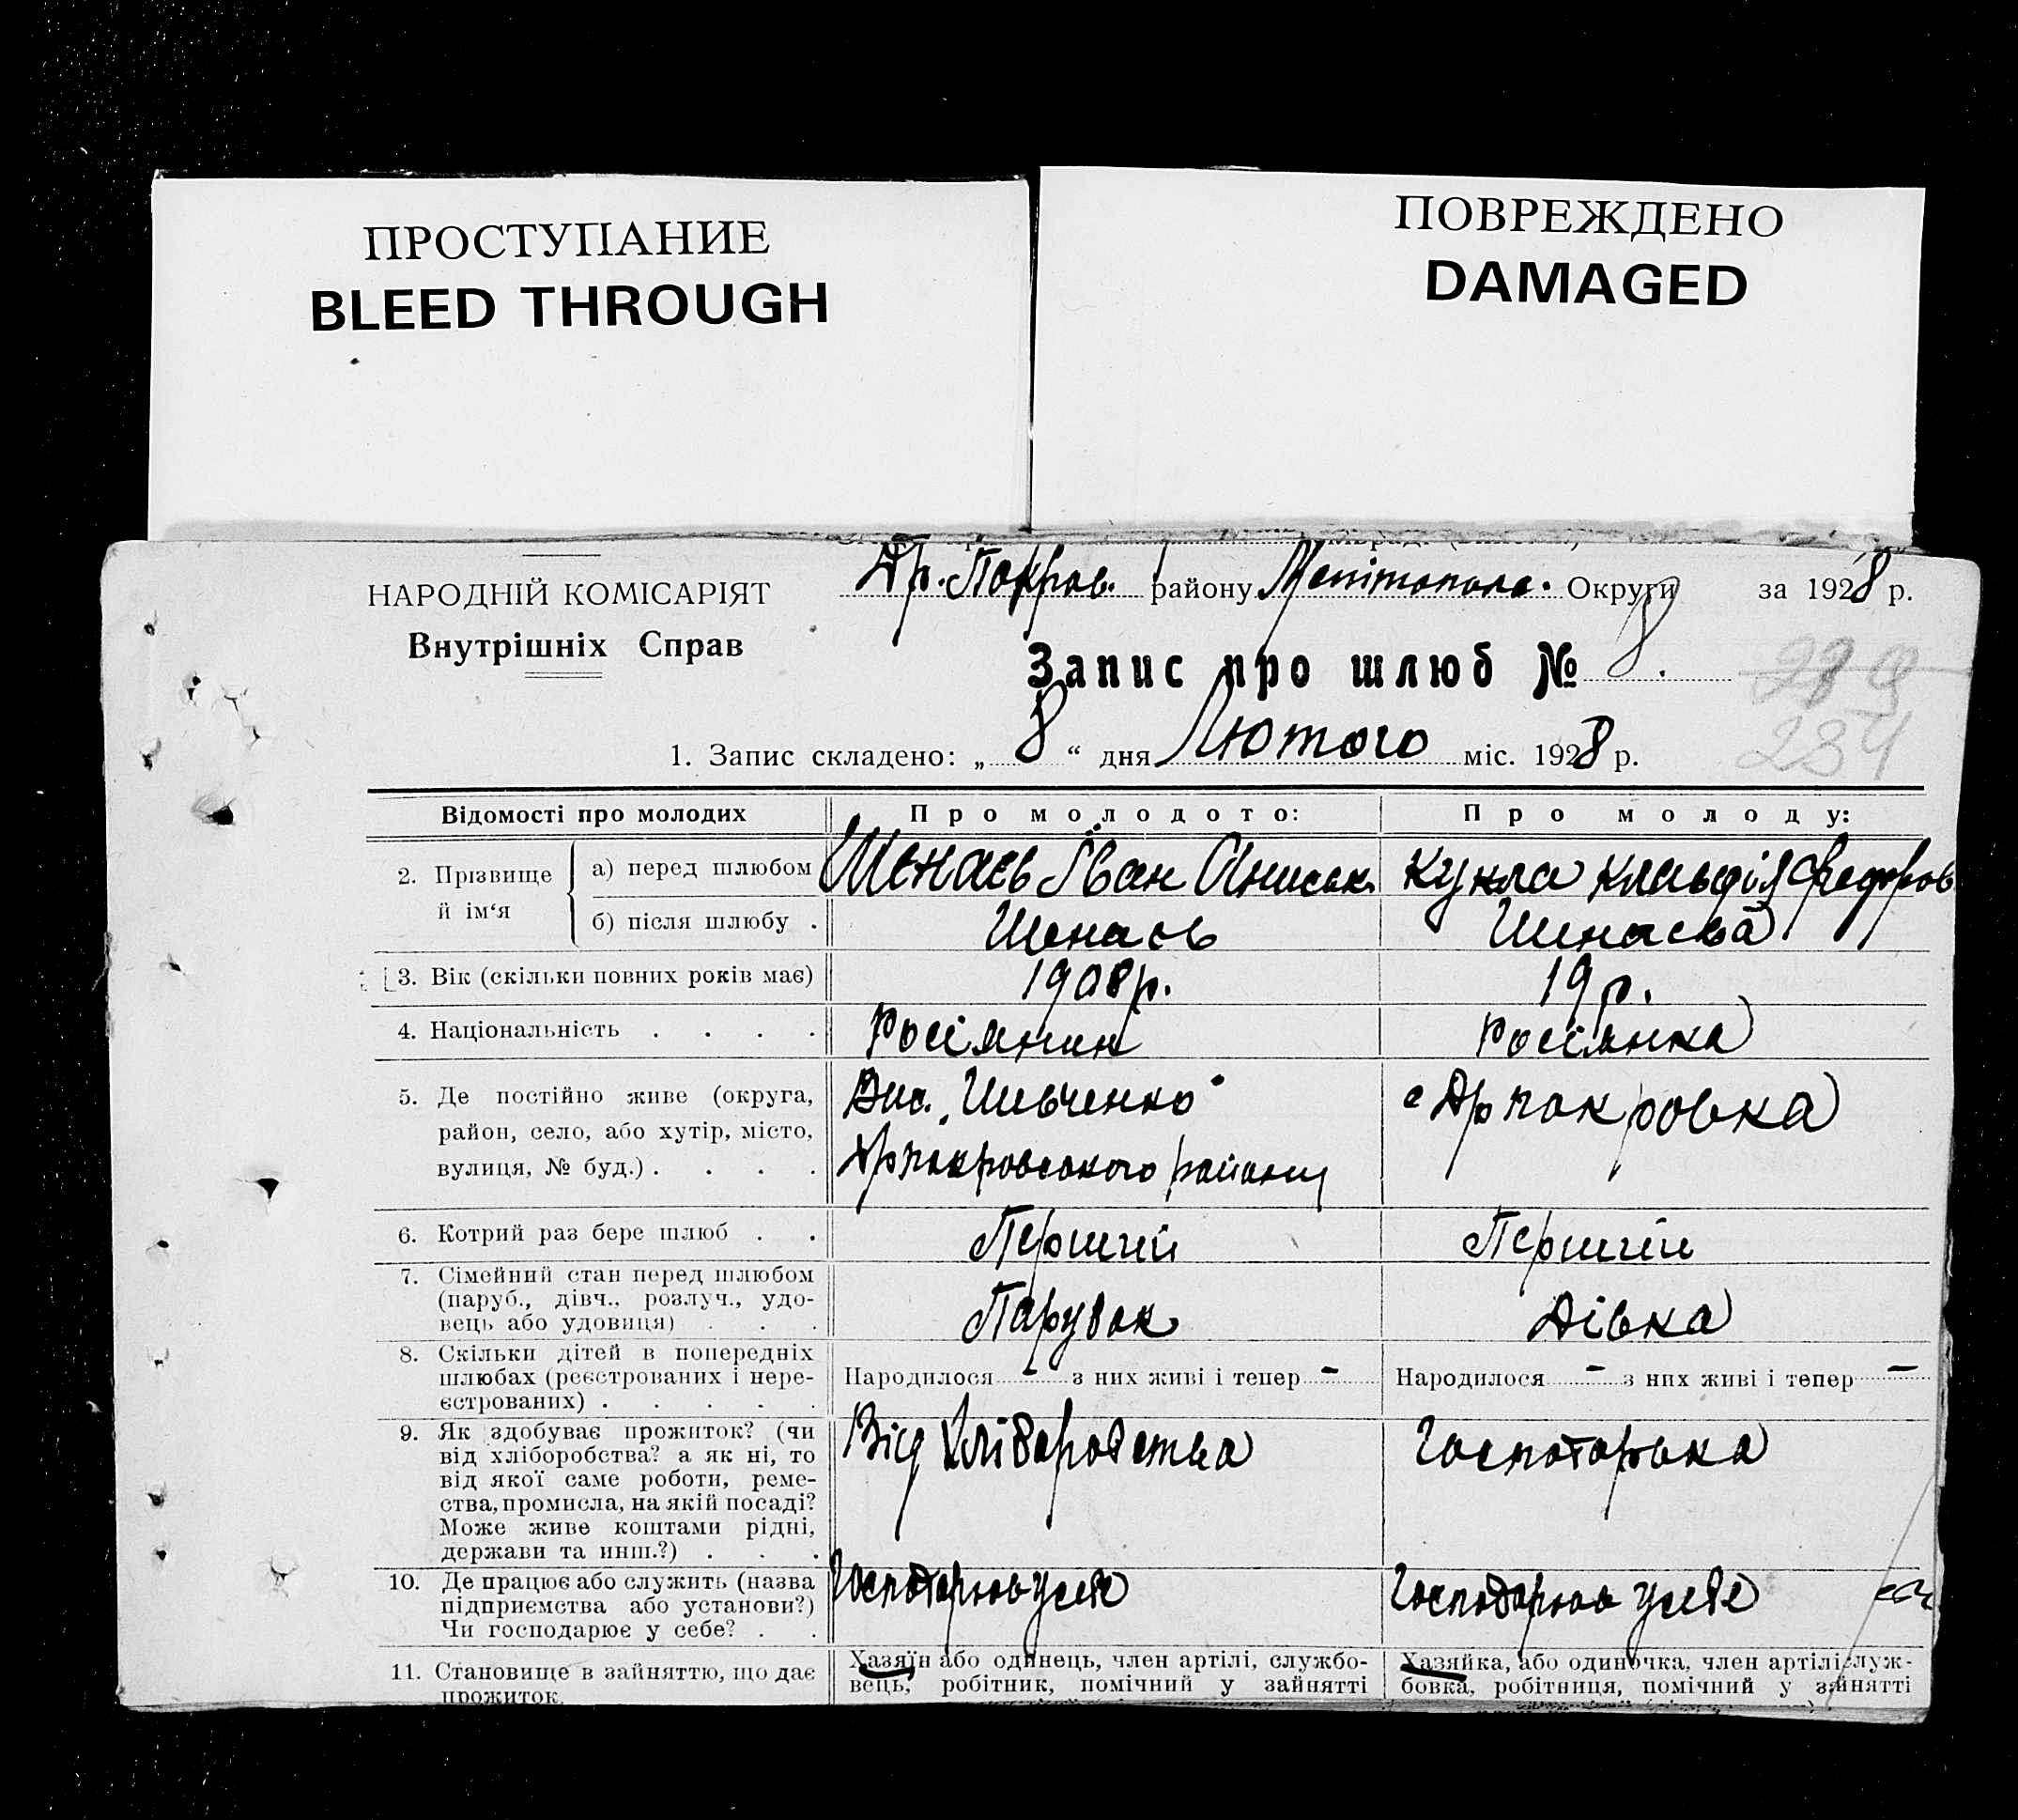 ПРОСТУПАНИЕ
BLEED THROUGH
ПОВРЕЖДЕНО
DAMAGED
НАРОДНІЙ КОМІСАРІЯТ
Внутрішніх Справ
Др. Покров. району Мелітопол. Округи за 1928 р.
Запис про шлюб № 8.
289
234
1. Запис складено: „ 8 “ дня Лютого міс. 1928 р.
Відомості про молодих
Про молодого:
Про молоду:
2. Прізвище й ім‘я
а) перед шлюбом
Іван
Кукла Клавдія Федоров
б) після шлюбу .
3. Вік (скільки повних років має)
1908 р.
19 р.
4. Національність . . . .
Росіянин
Росіянка
5. Де постійно живе (округа,
район, село, або хутір, місто,
вулиця, № буд.) . . . .
Вис. „Шевченко"
Дрпокровського району
с Дрпокровка
6. Котрий раз бере шлюб . .
Першій
Першій
7. Сімейний стан перед шлюбом
(паруб., дівч., розлуч., удо-
вець або удовиця) . . .
Парубок
Дівка
8. Скільки дітей в попередніх
шлюбах (реєстрованих і нере-
єстрованих) . . . . .
Народилося - з них живі і тепер -
Народилося - з них живі і тепер -
9. Як здобуває прожиток? (чи
від хліборобства? а як ні, то
від якої саме роботи, реме-
ства, промисла, на якій посаді?
Може живе коштами рідні,
держави та инш.?) . . .
Від хліборобства
10. Де працює або служить (назва
підприємства або установи?)
Чи господарює у себе? . .
11. Становище в зайняттю, що дає
прожиток.
Хазяїн або одинець, член артілі, службо-
вець, робітник, помічний у зайнятті
Хазяйка, або одиночка, член артілі служ-
бовка, робітниця, помічний у зайнятті